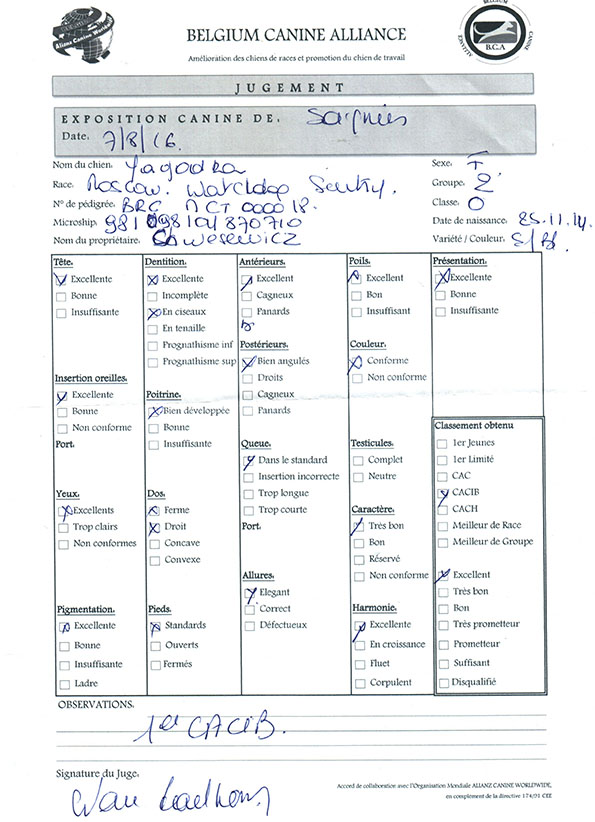 Alianz Canine Worldwide
BELGIUM CANINE ALLIANCE
Amélioration des chiens de races et promotion du chien de travail
BELGIUM
ALLIANCE
CANINE
B.C.A
JUGEMENT
EXPOSITION CANINE DE:
Date: 7/8/16.
Nom du chien: Yagodka
Sexe: F
Race: Moscow. Watchdog Sentry.
Groupe: 2
N° de pédigrée: BRC
Classe: O
Microship:
Date de naissance: 25.11.14.
Nom du propriétaire:
Variété / Couleur: S/Bl
Tête.
Excellente
Bonne
Insuffisante
Insertion oreilles.
Excellente
Bonne
Non conforme
Port.
Yeux.
Excellents
Trop clairs
Non conformes
Pigmentation.
Excellente
Bonne
Insuffisante
Ladre
Dentition.
Excellente
Incomplète
En ciseaux
En tenaille
Prognathisme inf
Prognathisme sup
Poitrine.
Bien développée
Bonne
Insuffisante
Dos.
Ferme
Droit
Concave
Convexe
Pieds.
Standards
Ouverts
Fermés
Antérieurs.
Excellent
Cagneux
Panards
Postérieurs.
Bien angulés
Droits
Cagneux
Panards
Queue.
Dans le standard
Insertion incorrecte
Trop longue
Trop courte
Port.
Allures.
Elegant
Correct
Défectueux
Poils.
Excellent
Bon
Insuffisant
Couleur.
Conforme
Non conforme
Testicules.
Complet
Neutre
Caractère.
Très bon
Bon
Réservé
Non conforme
Harmonie.
Excellente
En croissance
Fluet
Corpulent
Présentation.
Excellente
Bonne
Insuffisante
Classement obtenu
1er Jeunes
1er Limité
CAC
CACIB
CACH
Meilleur de Race
Meilleur de Groupe
Excellent
Très bon
Bon
Très prometteur
Prometteur
Suffisant
Disqualifié
OBSERVATIONS.
CACIB.
Signature du Juge.
Accord de collaboration avec l'Organisation Mondiale ALIANZ CANINE WORLDWIDE,
en complément de la directive 174/91 CEE